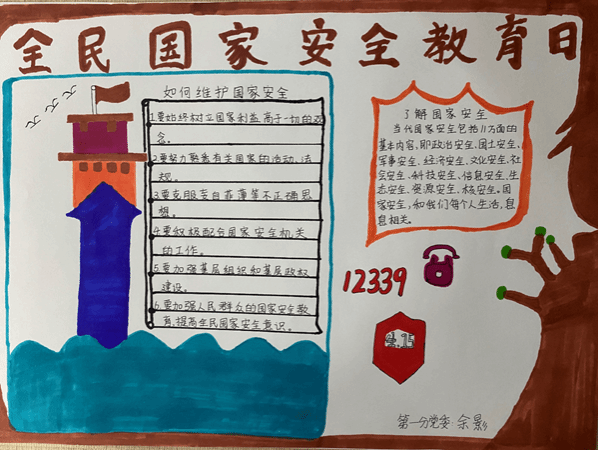 全民国家安全教育日
如何维护国家安全
1.要始终树立国家利益高于一切的观
念。
2.要努力熟悉有关国家的活动、法
规。
3.要克服妄自菲薄等不正确思
想。
4.要积极配合国家安全机关
的工作。
5.要加强基层组织和基层政权
建设。
6.要加强人民群众的国家安全教
育,提高全民国家安全意识。
了解国家安全
当代国家安全包括11方面的
基本内容,即政治安全、国土安全、
军事安全、经济安全、文化安全、社
会安全、科技安全、信息安全、生
态安全、资源安全、核安全。国
家安全,和我们每个人生活,息
息相关。
12339
4.15
第一分党委 余影